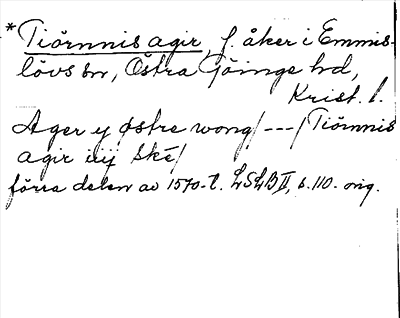 *Tiörnnis agir, f. åker i Emmis-
lövs sn, Östra Göinge hd,
Krist. l.
Ager y østre wong/---/Tiörnnis
agir iiij Skē/
förra delen av 1570-t. LSLB II, s. 110. orig.